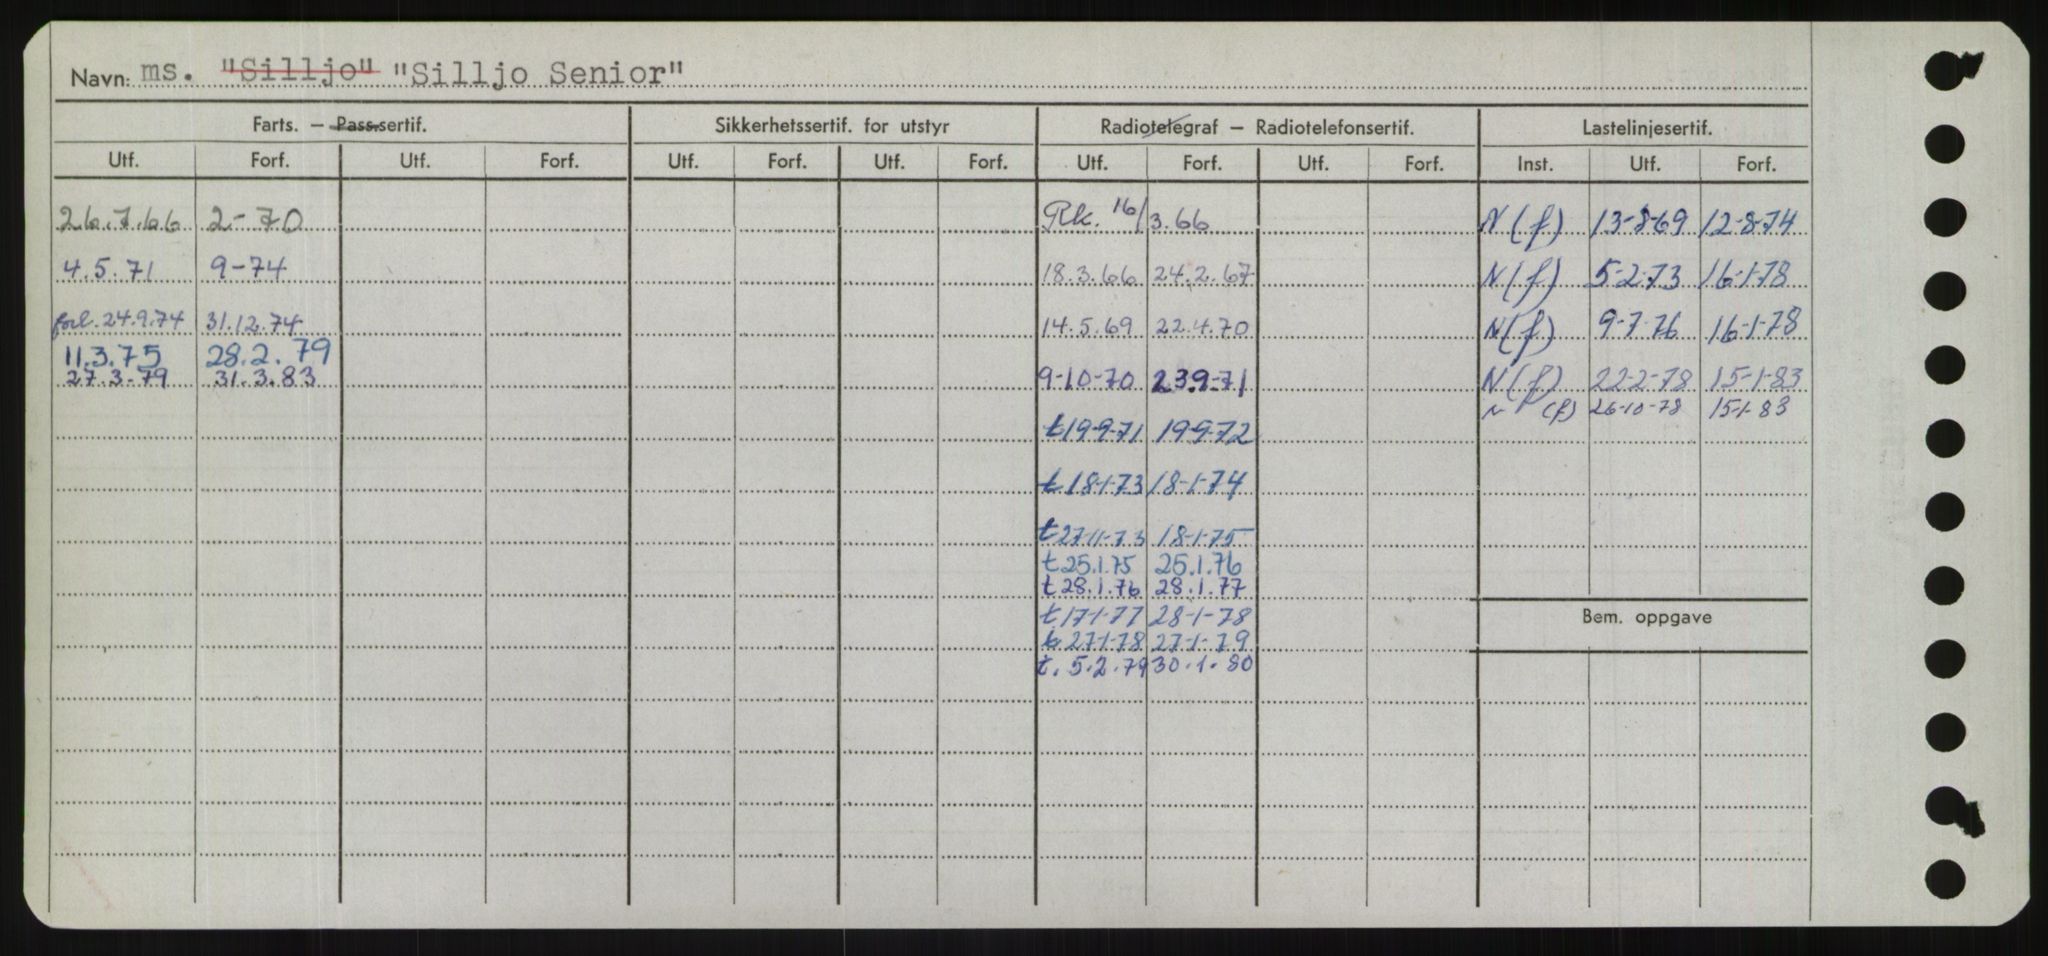 Navn: ms. "Silljo" "Silljo Senior"
Farts. — Pass.sertif. Sikkerhetssertif. for utstyr Radiotelegraf — Radiotelefonsertif. Lastelinjesertif.
Utf. Forf. Utf. Forf. Utf. Forf. Utf. Forf. Utf. Forf. Utf. Forf. Inst. Utf. Forf.
26.7.66 2-70 Rk. 16/3.66 N(f) 13-8-69 12-8-74
4.5.71 9-74 18.3.66 24.2.67 N(f) 5-2-73 16-1-78
forl. 24.9.74 31.12.74 14.5.69 22.4.70 N(f) 9-7-76 16-1-78
11.3.75 28.2.79
27.3-79 31.3.83 9-10-70 23.9-71 N(f) 22-2-78 15-1-83
N (f) 26-10-78 15-1-83
t 19-9-71 19-9-72
t 18-1-73 18-1-74
t 27-11-73 18-1-75
t 25.1.75 25.1.76
t 28.1.76 28.1.77
t 17-1-77 28-1-78
Bem. oppgave
t 27-1-78 27-1-79
t. 5.2.79 30.1.80